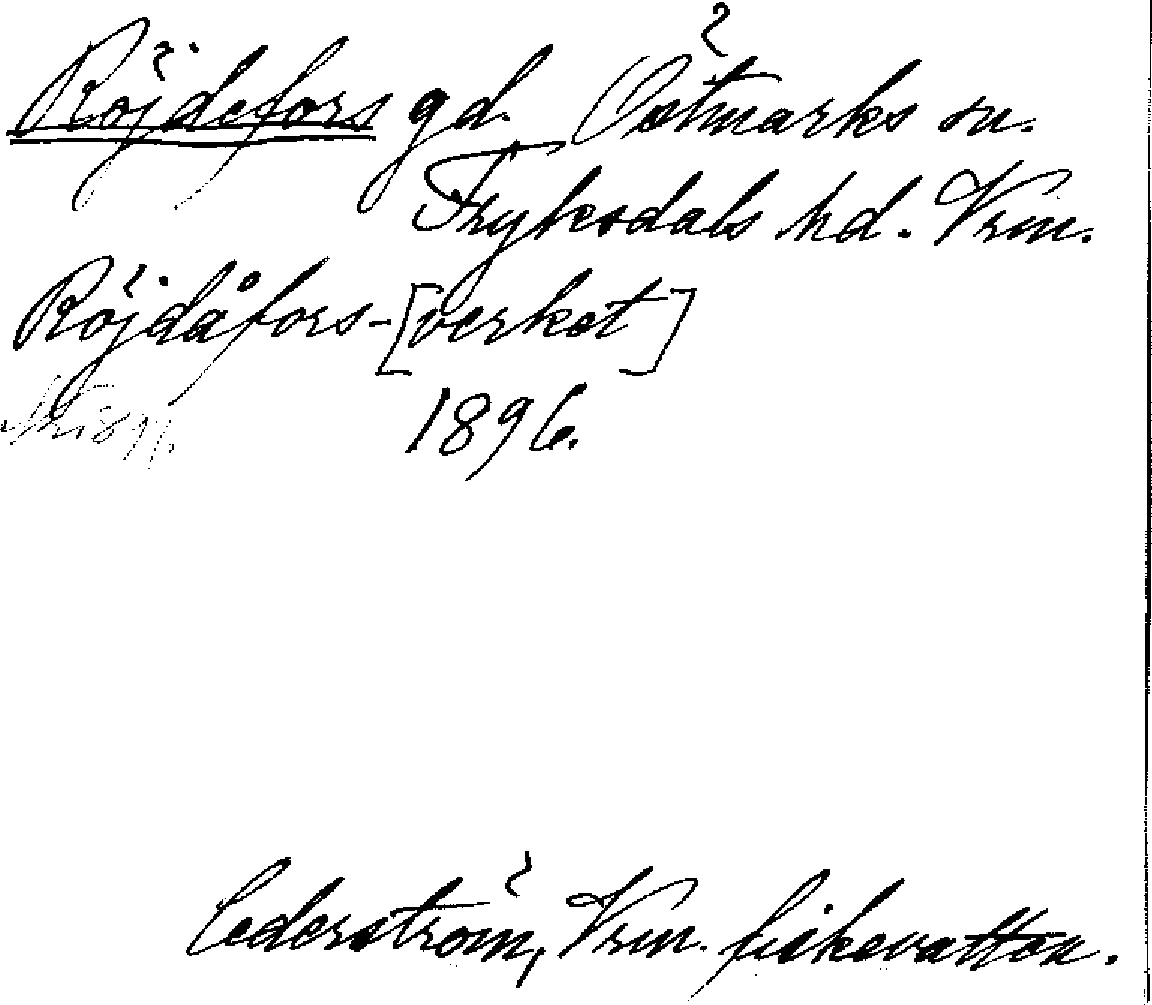 Röjdefors gd. Östmarks sn.
Fryksdals hd. Vrm.
Röjdåfors-[verket]
1896.
Cederström, Vrm. fiskevatten.